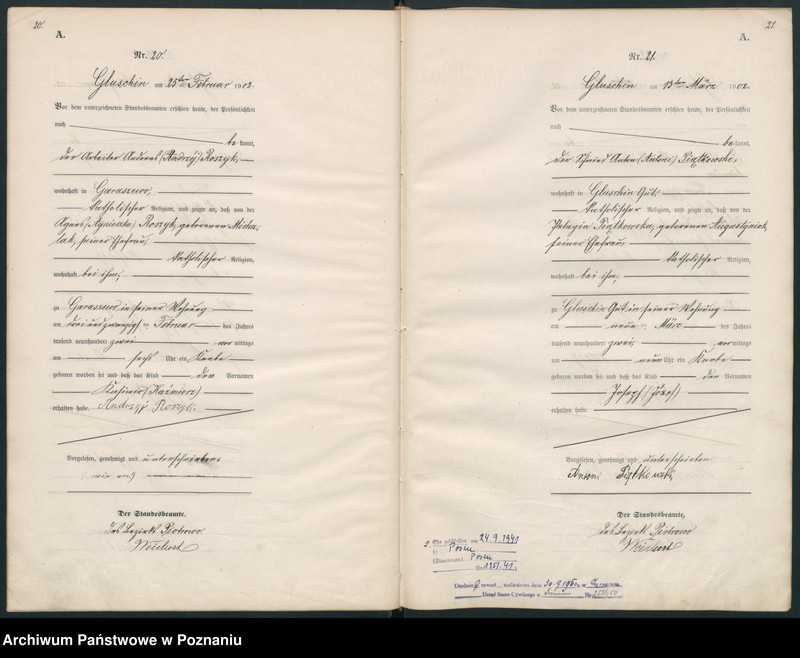 20.
A.
Nr. 20.
Gluschin am 25ten Februar 1902.
Vor dem unterzeichneten Standesbeamten erschien heute, der Persönlichkeit
nach
bekannt,
der Arbeiter Andreas (Andrzej) Roszyk,
wohnhaft in Garaszewo,
katholischer Religion, und zeigte an, daß von der
Agnes (Agnieszka) Roszyk, geborenen Micha-
lak, seiner Ehefrau,
katholischer Religion,
wohnhaft bei ihm,
zu Garaszewo in seiner Wohnung
am dreiundzwanzigsten Februar des Jahres
tausend neunhundert zwei vormittags
um sechs Uhr ein Knabe
geboren worden sei und daß das Kind den Vornamen
Kasimir (Kaźmierz)
erhalten habe. Andrzyj Roszyk.
Vorgelesen, genehmigt und unterschrieben
Der Standesbeamte.
des Bezirks Piotrowo
Weichert
21.
A.
Nr. 21.
Gluschin am 13ten März 1902.
Vor dem unterzeichneten Standesbeamten erschien heute, der Persönlichkeit
nach
bekannt,
der Schmied Anton (Antoni) Piątkowski,
wohnhaft in Gluschin Gut,
katholischer Religion, und zeigte an, daß von der
Pelagia Piątkowska, geborenen Augustyniak,
seiner Ehefrau
katholischer Religion,
wohnhaft bei ihm,
zu Gluschin Gut in seiner Wohnung
am neunten März des Jahres
tausend neunhundert zwei vormittags
um neun Uhr ein Knabe
geboren worden sei und daß das Kind den Vornamen
Joseph (Józef)
erhalten habe.
Vorgelesen, genehmigt und unterschrieben
Antoni Piątkowski
Der Standesbeamte,
des Bezirks Piotrowo
Weichert
2. Ehe geschlossen am 24.9.1941
in Posen
(Standesamt Posen
Nr. 1351/41.
Urząd Stanu Cywilnego w
Archiwum Państwowe w Poznaniu